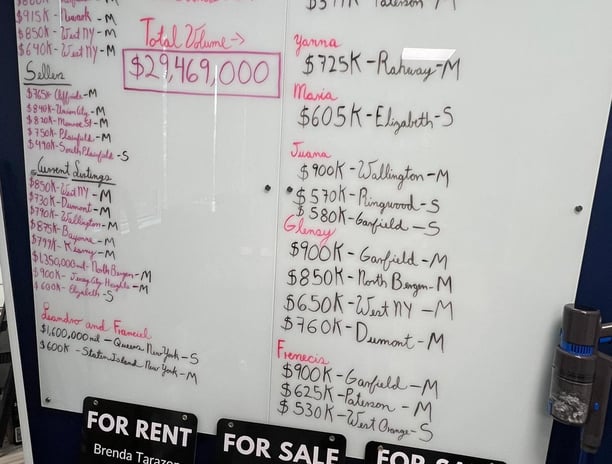 $915K - Newark - M
$850K - West NY - M
$640K - West NY - M
Sellers
$765K - Cliffside - M
$840K - Union City - M
$820K - Monroe St - M
$750K - Plainfield - M
$490K - South Plainfield - S
Current Listings
$850K - West NY - M
$730K - Dumont - M
$790K - Wallington - M
$875K - Bayonne - M
$799K - Kearny - M
$1,350,000mil - North Bergen - M
$900K - Jersey City Heights - M
$600K - Elizabeth - S
Leandro and Franciel
$1,600,000mil - Queens New York - S
$600K - Staten Island New York - M
Total Volume →
$29,469,000
Paterson - M
Yanna
$725K - Rahway - M
Maria
$605K - Elizabeth - S
Juana
$900K - Wallington - M
$570K - Ringwood - S
$580K - Garfield - S
Glensy
$900K - Garfield - M
$850K - North Bergen - M
$650K - West NY - M
$760K - Dumont - M
Frenecis
$900K - Garfield - M
$625K - Paterson - M
$530K - West Orange - S
FOR RENT
Brenda
FOR SALE
FOR